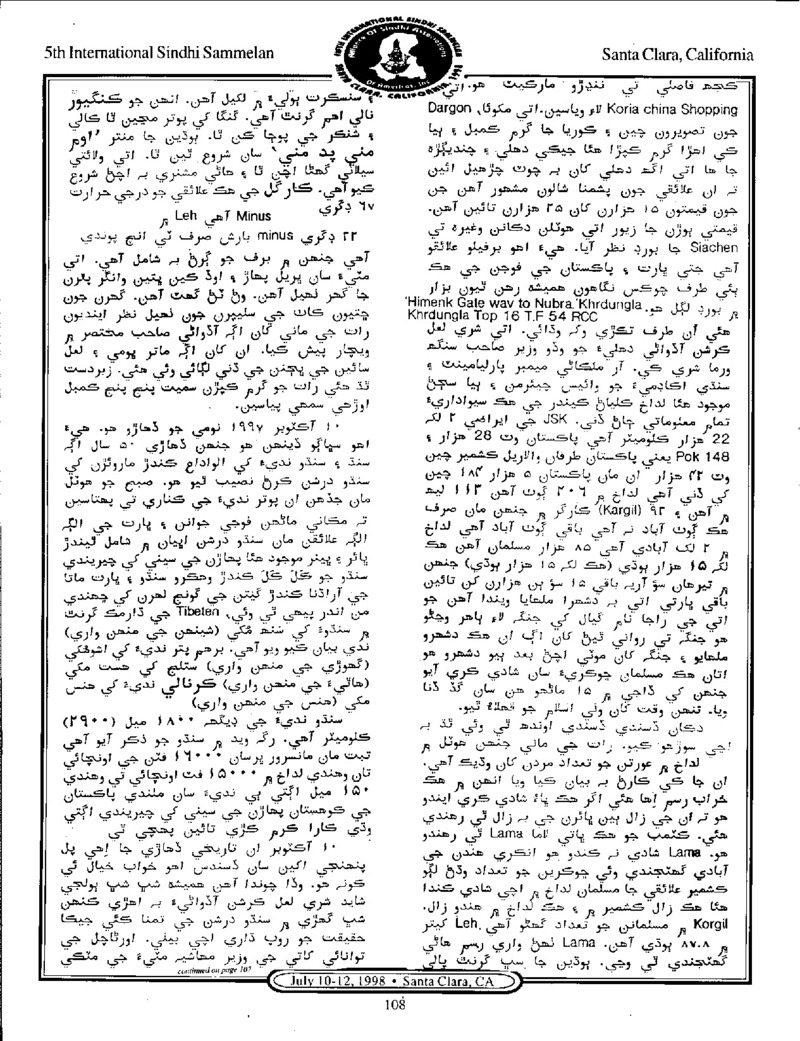 5th International Sindhi Sammelan
5TH INTERNATIONAL SINDHI SAMMELAN
SANTA CLARA, CALIFORNIA 1998
Santa Clara, California
ڪجھ فاصلي تي ننڍڙو مارڪيٽ هو. اتي
Koria china Shopping لاءِ وياسين. اتي Dargon
جون تصويرون چين ۽ ڪوريا جا گرم ڪمبل ۽ ٻيا
کي اهڙا گرم ڪپڙا هئا جيڪي دهلي ۽ چنديڳڙهه
جا ها اتي اگھ دهلي کان به چوٽ چڙهيل ائين
ته ان علائقي جون پشمنا شالون مشهور آهن جن
جون قيمتون ١٥ هزارن کان ٢٥ هزارن تائين آهن.
قيمتي ٻوڙن جا زيور اتي هوٽلن دڪانن وغيره تي
Siachen جا بورڊ نظر آيا. هيءَ اهو برفيلو علائقو
آهي جتي ڀارت ۽ پاڪستان جي فوجن جي هڪ
ٻئي طرف چوڪس نگاهون هميشه رهن ٿيون بزار
۾ بورڊ لڳل هو. 'Himenk Gate wav to Nubra 'Khrdungla
Khrdungla Top 16 T.F 54 RCC
هئي اُن طرف تڪڙي وک وڌائي. اتي شري لعل
ڪرشن آڏواڻي دهليءَ جو وڏو وزير صاحب سنگھ
ورما شري ڪي. آر ملڪاڻي ميمبر پارليامينٽ ۽
سنڌي اڪاڊميءَ جو وائيس چيئرمن ۽ ٻيا سڄڻ
موجود هئا لداخ ڪلياڻ ڪيندر جي هڪ سيواداريءَ
تمام معلوماتي ڄاڻ ڏني. JSK جي ايراضي ٢ لک
22 هزار ڪلوميٽر آهي پاڪستان وٽ 28 هزار ۽
Pok 148 يعني پاڪستان طرفان والاريل ڪشمير چين
وٽ ٤٢ هزار ان مان پاڪستان ٥ هزار ١٨٤ چين
کي ڏني آهي لداخ ۾ ٢٠٦ ڳوٺ آهن ١١٣ ليھ
۾ آهن ۽ ٩٢ (Kargil) ڪارگر ۾ جنهن مان صرف
هڪ ڳوٺ آباد نه آهي باقي ڳوٺ آباد آهي لداخ
۾ ٢ لک آبادي آهي ٨٥ هزار مسلمان آهن هڪ
لک ١٥ هزار ٻوڌي (هڪ لک ١٥ هزار ٻوڌي) جنهن
۾ تيرهان سؤ آريه باقي ١٥ سؤ ٻن هزارن کن تائين
باقي ڀارتي اتي به دشهرا ملهايا ويندا آهن جو
اتي جي راجا نام گيال کي جنگ لاءِ ٻاهر وڃڻو
هو جنگ تي رواني ٿيڻ کان اڳ ان هڪ دشهرو
ملهايو ۽ جنگ کان موٽي اچڻ بعد ٻيو دشهرو هو
اتان هڪ مسلمان ڇوڪريءَ سان شادي ڪري آيو
جنهن کي ڏاجي ۾ ١٥ ماڻهو هن سان گڏ ڏنا
ويا. تنهن وقت کان وٺي اسلام جو ڦهلاءُ ٿيو.
دڪان ڏسندي ڏسندي اونده ٿي وئي ٿڌ به
اچي سوڙهو ڪيو. رات جي ماني جنهن هوٽل ۾
لداخ ۾ عورتن جو تعداد مردن کان وڌيڪ آهي.
ان جا ڪي ڪارڻ به بيان ڪيا ويا انهن ۾ هڪ
خراب رسم اها هئي اگر هڪ ڀاءُ شادي ڪري ايندو
هو ته ان جي زال ٻين ڀائرن جي به زال ٿي رهندي
هئي. ڪٽمب جو هڪ ڀاتي لاما Lama ٿي رهندو
هو. Lama شادي نه ڪندو هو انڪري هندن جي
آبادي گھٽجندي وئي ڇوڪرين جو تعداد وڌڻ لڳو
ڪشمير علائقي جا مسلمان لداخ ۾ اچي شادي ڪندا
هئا هڪ زال ڪشمير ۾ ۽ هڪ لداخ ۾ هندو زال.
Korgil ۾ مسلمانن جو تعداد گھڻو آهي Leh, کيتر
۾ ٨٧.٨ ٻوڌي آهن. Lama ٺهڻ واري رسم هاڻي
گھٽجندي ٿي وڃي. ٻوڌين جا سڀ گرنٿ پالي
۽ سنسڪرت ٻوليءَ ۾ لکيل آهن. انهن جو ڪنگيور
نالي اهم گرنٿ آهي. گنگا کي پوتر مڃين ٿا ڪالي
۽ شنڪر جي پوڄا ڪن ٿا. ٻوڌين جا منتر "اوم
مني پد مني" سان شروع ٿين ٿا. اتي ولائتي
سيلاني گھڻا اچن ٿا ۽ هاڻي مشنري به اچڻ شروع
ڪيو آهي. ڪارگل جي هڪ علائقي جو درجي حرارت
٦٧ ڊگري
Minus آهي Leh ۾
٢٢ ڊگري minus بارش صرف ٽي انچ پوندي
آهي جنهن ۾ برف جو ڳرڻ به شامل آهي. اتي
مٽيءَ سان ڀريل پهاڙ ۽ اوڏ ڪين ڀتين وانگر پٿرن
جا گھر ٺهيل آهن. وڻ ٽڻ گھٽ آهن. گھرن جون
ڇتيون ڪاٺ جي سليپرن جون ٺهيل نظر اينديون
رات جي ماني کان اڳ آڏواڻي صاحب مختصر ۾
ويچار پيش ڪيا. ان کان اڳ ماتر ڀومي ۽ لعل
سائين جي ڀڄنن جي ڏني لڳائي وئي هئي. زبردست
ٿڌ هئي رات جو گرم ڪپڙن سميت پنج پنج ڪمبل
اوڙهي سمهي پياسين.
١٠ آڪٽوبر ١٩٩٧ نومي جو ڏهاڙو هو. هيءَ
اهو سڀاڳو ڏينهن هو جنهن ڏهاڙي ٥٠ سال اڳ
سنڌ ۽ سنڌو نديءَ کي الوداع ڪندڙ ماروئڙن کي
سنڌو درشن ڪرڻ نصيب ٿيو هو. صبح جو هوٽل
مان جڏهن ان پوتر نديءَ جي ڪناري تي پهتاسين
ته مڪاني ماڻهن فوجي جوانن ۽ ڀارت جي الڳ
الڳ علائقن مان سنڌو درشن اڀيان ۾ شامل ٿيندڙ
ڀائر ۽ ڀينر موجود هئا پهاڙن جي سيني کي چيريندي
سنڌو جو ڪَلَ ڪَلَ ڪندڙ وهڪرو سنڌو ۽ ڀارت ماتا
جي آراڌنا ڪندڙ گيتن جي گونج لهرن کي ڇهندي
من اندر پيهي ٿي وئي. Tibeten جي ڌارمڪ گرنٿ
۾ سنڌوءَ کي سنھ مُکي (شينهن جي منهن واري)
ندي بيان ڪيو ويو آهي. برهم پتر نديءَ کي اشومُکي
(گھوڙي جي منهن واري) ستلج کي هست مکي
(هاٿيءَ جي منهن واري) ڪرنالي نديءَ کي هنس
مکي (هنس جي منهن واري)
سنڌو نديءَ جي ڊيگھ ١٨٠٠ ميل (٢٩٠٠)
ڪلوميٽر آهي. رگ ويد ۾ سنڌو جو ذڪر آيو آهي
تبت مان مانسرور ڀرسان ١٦٠٠٠ فٽن جي اونچائي
تان وهندي لداخ ۾ ١٥٠٠٠ فٽ اونچائي تي وهندي
١٥٠ ميل اڳتي ٻي نديءَ سان ملندي پاڪستان
جي ڪوهستان پهاڙن جي سيني کي چيريندي اڳتي
وڌي ڪارا ڪرم ڪڙي تائين پهچي ٿي
١٠ آڪٽوبر ان تاريخي ڏهاڙي جا اهي پل
پنهنجي اکين سان ڏسندس اهو خواب خيال ئي
ڪونه هو. وڏا چوندا آهن هميشه شڀ شڀ ٻولجي
شايد شري لعل ڪرشن آڏواڻيءَ به اهڙي ڪنهن
شڀ گھڙي ۾ سنڌو درشن جي تمنا ڪئي جيڪا
حقيقت جو روپ ڌاري اچي بيٺي. اورڻاچل جي
توانائي کاتي جي وزير معاشيہ مٽيءَ جي مٽڪي
continued on page 107
July 10-12, 1998 • Santa Clara, CA
108